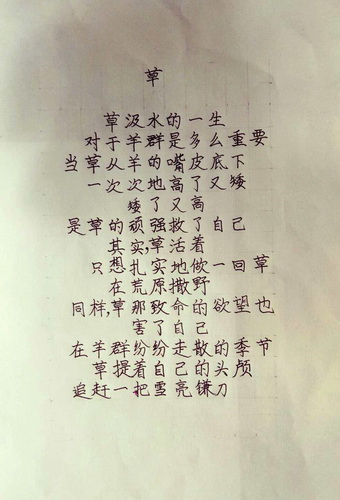 草
草汲水的一生
对于羊群是多么重要
当草从羊的嘴皮底下
一次次地高了又矮
矮了又高
是草的顽强救了自己
其实,草活着
只想扎实地做一回草
在荒原撒野
同样,草那致命的欲望也
害了自己
在羊群纷纷走散的季节
草提着自己的头颅
追赶一把雪亮镰刀